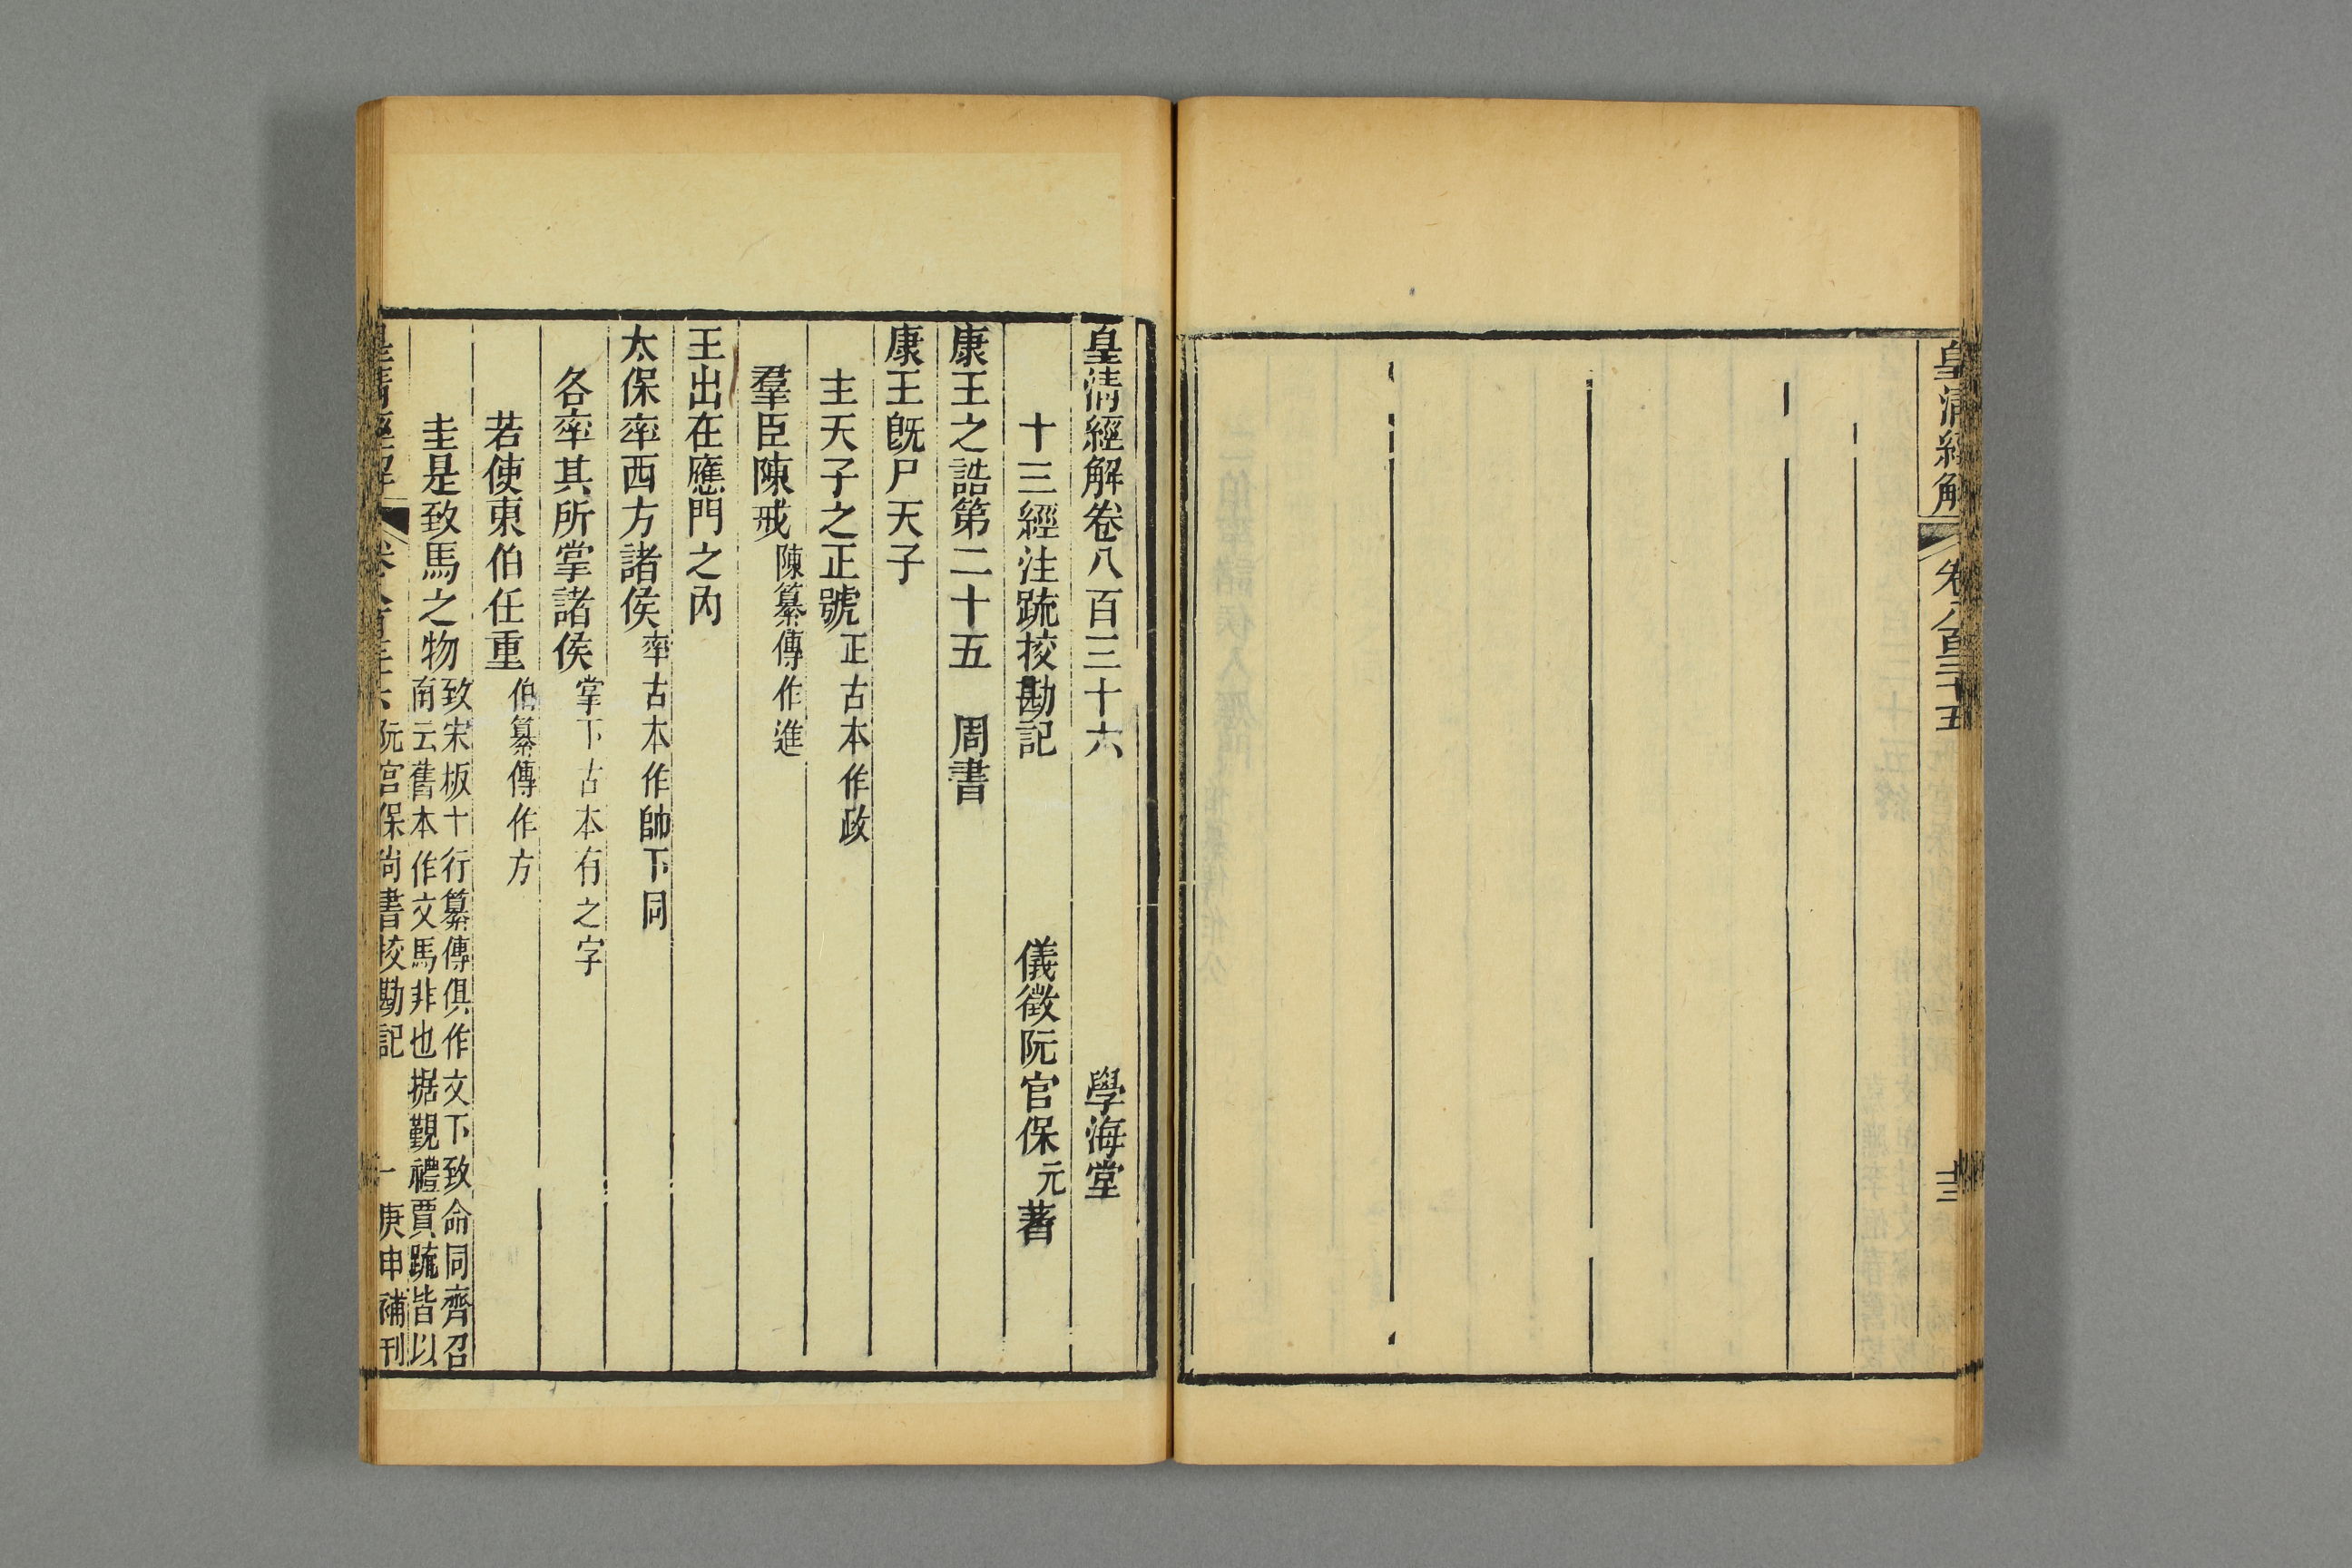 皇清經解 卷八百三十五 十三
皇清經解卷八百三十六 學海堂
十三經注疏挍勘記 儀徵阮宮保元著
康王之誥第二十五 周書
康王旣尸天子
主天子之正號正古本作政
羣臣陳戒陳纂傳作進
王出在應門之內
太保率西方諸侯率古本作帥下同
各率其所掌諸侯掌下古本有之字
若使東伯任重伯纂傳作方
圭是致馬之物致宋板十行纂傳俱作文下致命同齊召
南云舊本作文馬非也據覲禮賈疏皆以
皇清經解 卷八百三十六 阮宮保尚書挍勘記 一 庚申補刊